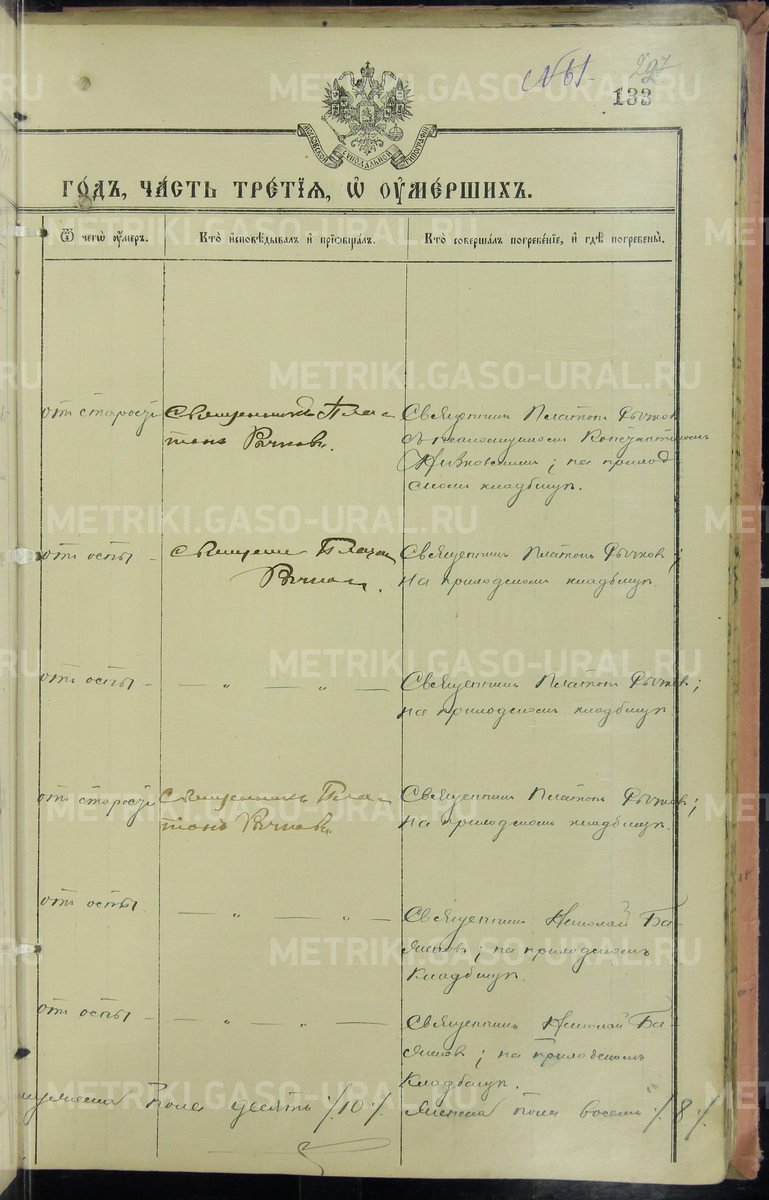 №61.
297
133
МОСКОВСКОЙ СУНОДАЛЬНОЙ ТИПОГРАФІИ
ГО́ДЪ, ЧА́СТЬ ТРЕ́ТІЯ, Ѡ҆ ОУ҆МЕ́РШИХЪ.
Ѿ чегѡ̀ оу҆́меръ.
Кто̀ и҆сповѣ́дывалъ и҆ прїѡбща́лъ.
Кто̀ соверша́лъ погребе́нїе, и҆ гдѣ̀ погребены̀.
отъ старости
священникъ Пла-
тонъ Рычковъ.
Священникъ Платонъ Рычковъ
съ псаломщикомъ Константиномъ
; на приход
скомъ кладбищѣ.
отъ оспы
священн Платонъ
Рычков.
Священникъ Платонъ Рычковъ;
на приходскомъ кладбищѣ.
отъ оспы –
— „ — „ —
Священникъ Платонъ Рычковъ;
на приходскомъ кладбищѣ
отъ старости
священникъ Пла-
тонъ Рычковъ.
Священникъ Платонъ Рычковъ;
на приходскомъ кладбищѣ.
отъ оспы
— „ — „ —
Священникъ Николай Ба-
; на приходскомъ
кладбищѣ.
отъ оспы –
— „ — „ —
Священникъ Николай Ба-
; на приходскомъ
кладбищѣ.
пола десять ./.10./. женска пола восемь ./.8./.
METRIKI.GASO-URAL.RU